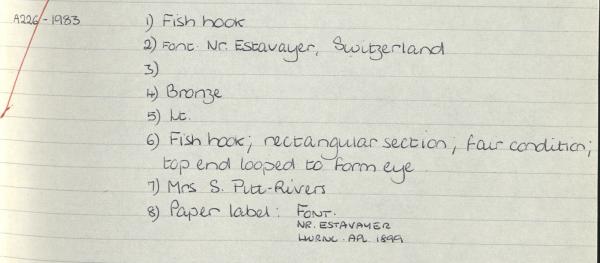 A226-1983 1) Fish hook
2) Font. Nr. Estavayer, Switzerland
3)
4) Bronze
5) Lt.
6) Fish hook; rectangular section; fair condition;
top end looped to form eye
7) Mrs S. Pitt-Rivers
8) Paper label: FONT.
NR. ESTAVAYER
APL 1899